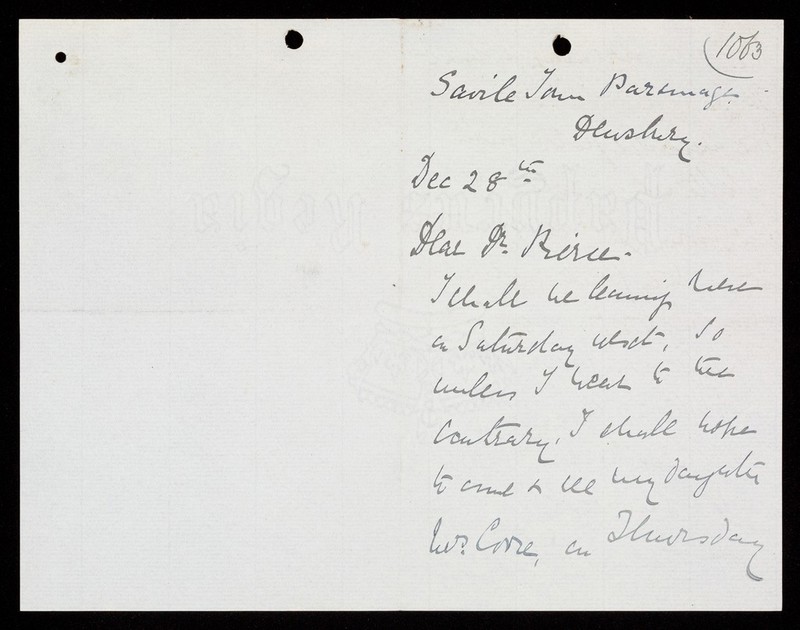 1063
Savile Town Parsonage
Dewsbury.
Dec 28th
Dear Dr. Pierce.
I shall be leaving here
on Saturday next, so
unless I hear to the
contrary, I shall hope
to come & see my daughter
Mrs. on Thursday